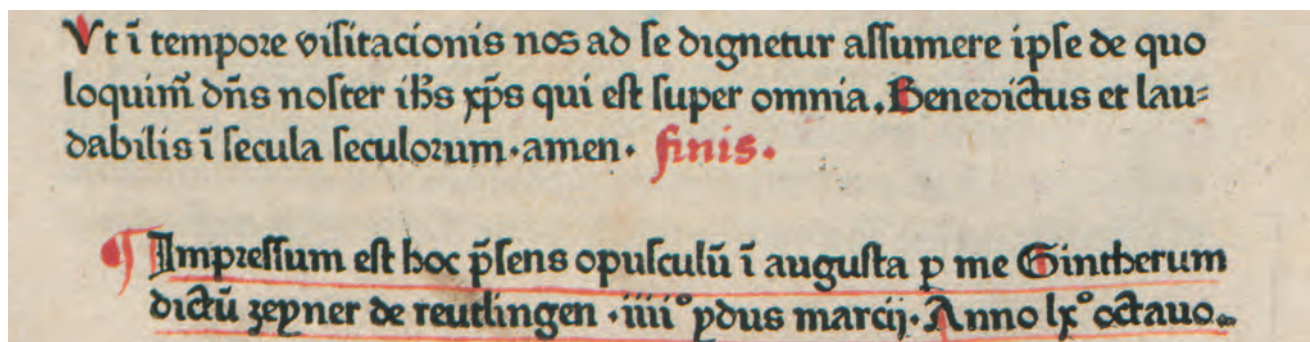 Vt ī tempore viſitacionis nos ad ſe dignetur aſſumere ipſe de quo
loquim̄ dn̄s noſter ihs xp̄s qui eſt ſuper omnia. Benedictus et lau⸗
dabilis ī ſecula ſeculorum·amen· finis.
¶ Impreſſum eſt hoc p̄ſens opuſculū ī auguſta ꝑ me Gintherum
dictū zeyner de reutlingen ·iiiiº ydus marcij· Anno lxº octauo.